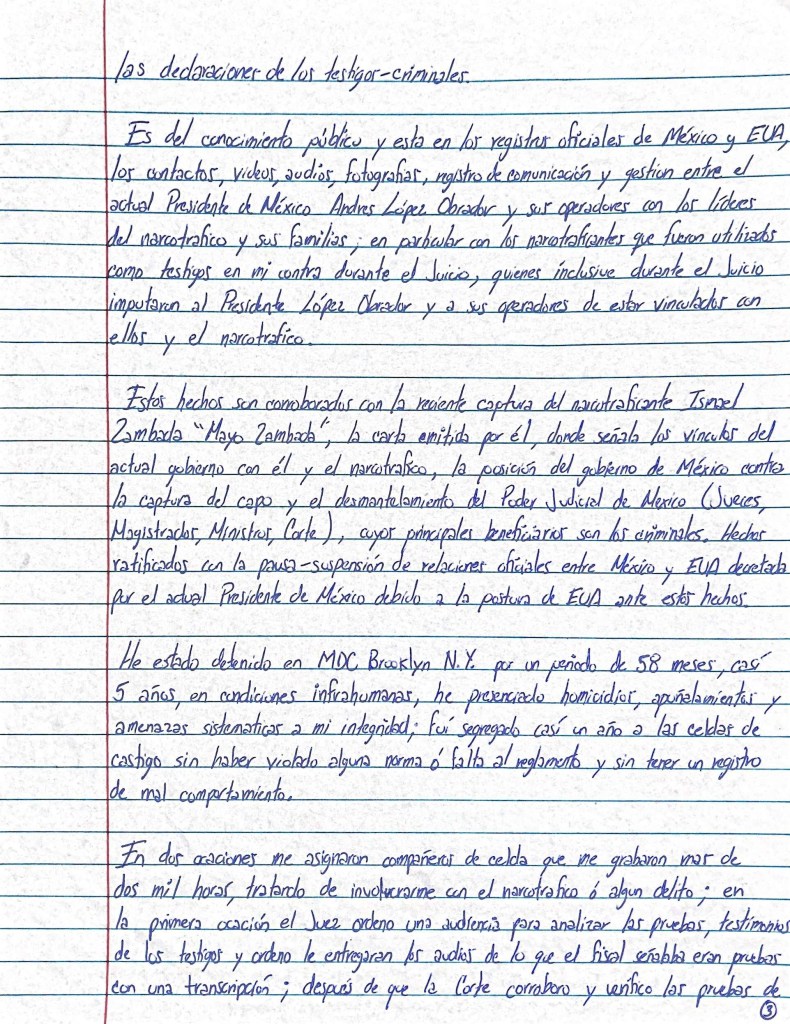 las declaraciones de los testigos-criminales.
Es del conocimiento público y esta en los registros oficiales de México y EUA,
los contactos, videos, audios, fotografías, registro de comunicación y gestion entre el
actual Presidente de México Andres López Obrador y sus operadores con los líderes
del narcotrafico y sus familias; en particular con los narcotraficantes que fueron utilizados
como testigos en mi contra durante el Juicio, quienes inclusive durante el Juicio
imputaron al Presidente López Obrador y a sus operadores de estar vinculados con
ellos y el narcotrafico.
Estos hechos son corroborados con la reciente captura del narcotraficante Ismael
Zambada "Mayo Zambada", la carta emitida por él, donde señala los vinculos del
actual gobierno con él y el narcotrafico, la posición del gobierno de México contra
la captura del capo y el desmantelamiento del Poder Judicial de Mexico (Jueces,
Magistrados, Ministros, Corte), cuyos principales beneficiarios son los criminales. Hechos
ratificados con la pausa-suspensión de relaciones oficiales entre México y EUA decretada
por el actual Presidente de México debido a la postura de EUA ante estos hechos.
He estado detenido en MDC Brooklyn N.Y. por un periodo de 58 meses, casí
5 años, en condiciones infrahumanas, he presenciado homicidios, apuñalamientos y
amenazas sistematicas a mi integridad; fuí segregado casí un año a las celdas de
castigo sin haber violado alguna norma ó falta al reglamento y sin tener un registro
de mal comportamiento.
En dos ocaciones me asignaron compañeros de celda que me grabaron mas de
dos mil horas, tratando de involucrarme con el narcotrafico ó algun delito; en
la primera ocación el Juez ordeno una audiencia para analizar las pruebas, testimonios
de los testigos y ordeno le entregaran los audios de lo que el fiscal señalba eran pruebas
con una transcripción; después de que la Corte corroboro y verifico las pruebas de
3